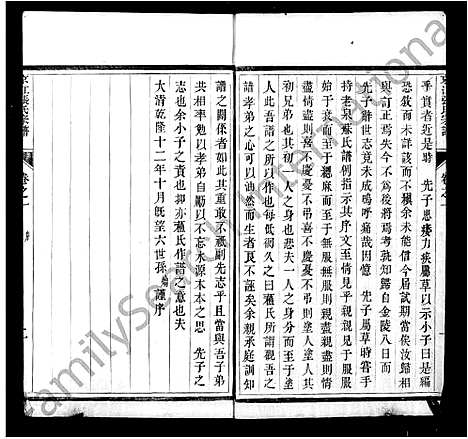 乎實者近是時　先子患瘧力疾屬草以示小子曰是編
恐敘而未詳該而不積余未能信今屆試期當俟汝歸相
與訂正焉失今不爲後將焉考孰知歸自金陵八日而
先子辭世志竟未成嗚呼痛哉因憶　先子屬草時嘗手
持老泉蘇氏譜例指示其序文至情見乎親親見乎服服
始于衰而至于緦麻而至于無服無服則親盡親盡則情
盡情盡則喜不慶憂不弔喜不慶憂不弔則塗人也塗人其
初兄弟也兄弟其初一人之身也悲夫一人之身分而至于塗
人此吾譜之所以作也每低徊久之曰蘇氏所謂觀吾之
譜孝弟之心可以油然而生者良不誣矣余親承庭訓知
譜之關係者如此其重敢不祇嗣先志乎且當與吾子弟
共相率勉以孝弟自勵以不忘水源木本之思　先子之
志也余小子之責也抑亦蘇氏作譜之意也夫
大清乾隆十二年十月既望六世孫 謹序
京江張氏宗譜
卷之一
序
FamilySearch International